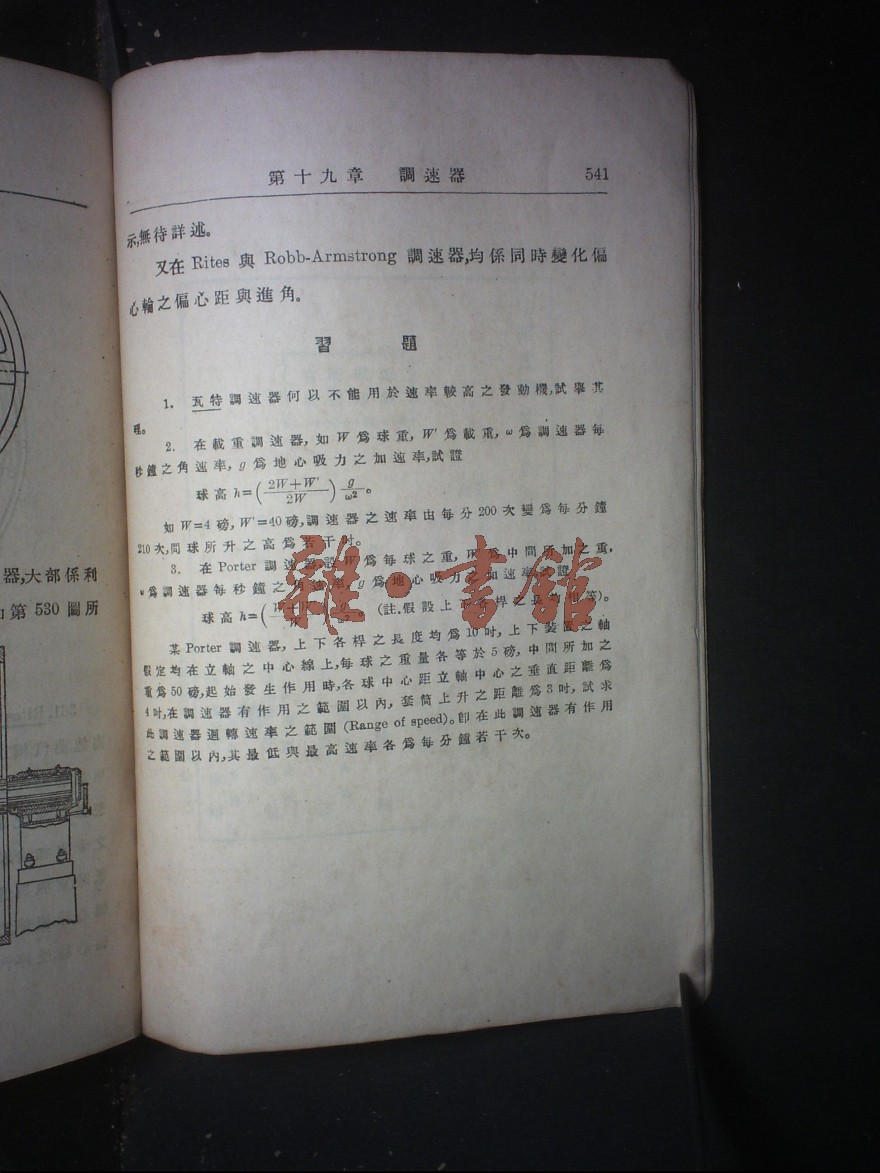 器,大部係利
第 530 圖所
第十九章 調速器 541
示,無待詳述。
又在 Rites 與 Robb-Armstrong 調速器,均係同時變化偏
心輪之偏心距與進角。
習 題
1. 瓦特調速器何以不能用於速率較高之發動機,試舉其
理。
2. 在載重調速器,如 W 爲球重, W′ 爲載重, ω 爲調速器每
秒鐘之角速率, g 爲地心吸力之加速率,試證
球高 h=(2W+W′/2W) g/ω²。
如 W=4 磅, W′=40磅,調速器之速率由每分200次變爲每分鐘
210次,問球所升之高爲若干吋。
3. 在 Porter 調速器,設 W 爲每球之重, 爲中間所加之重,
ω爲調速器每秒鐘之角速率, g 爲地心吸力之加速率
球高 h= 。(註.假設上下各桿之長均相等)。
某 Porter 調速器,上下各桿之長度均爲10吋,上下裝置之軸
假定均在立軸之中心線上,每球之重量各等於5磅,中間所加之
重爲50磅,起始發生作用時,各球中心距立軸中心之垂直距離爲
4吋,在調速器有作用之範圍以內,套筒上升之距離爲3吋,試求
此調速器迴轉速率之範圍 (Range of speed)。卽在此調速器有作用
之範圍以內,其最低與最高速率各爲每分鐘若干次。
雜·書館